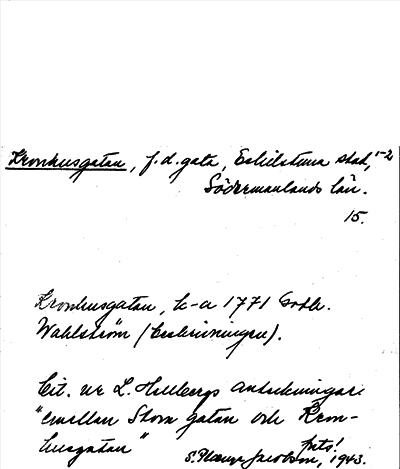 Kronhusgatan, f.d. gata, Eskilstuna stad, 1-2
Södermanlands län.
15.
Kronhusgatan, k-a 1771 Gotth.
Wahlström (beskrivningen).
Cit. ur L. Hellbergs anteckningar:
"emellan Stora gatan och Kron-
husgatan" juts!
S. Jacobson, 1943.